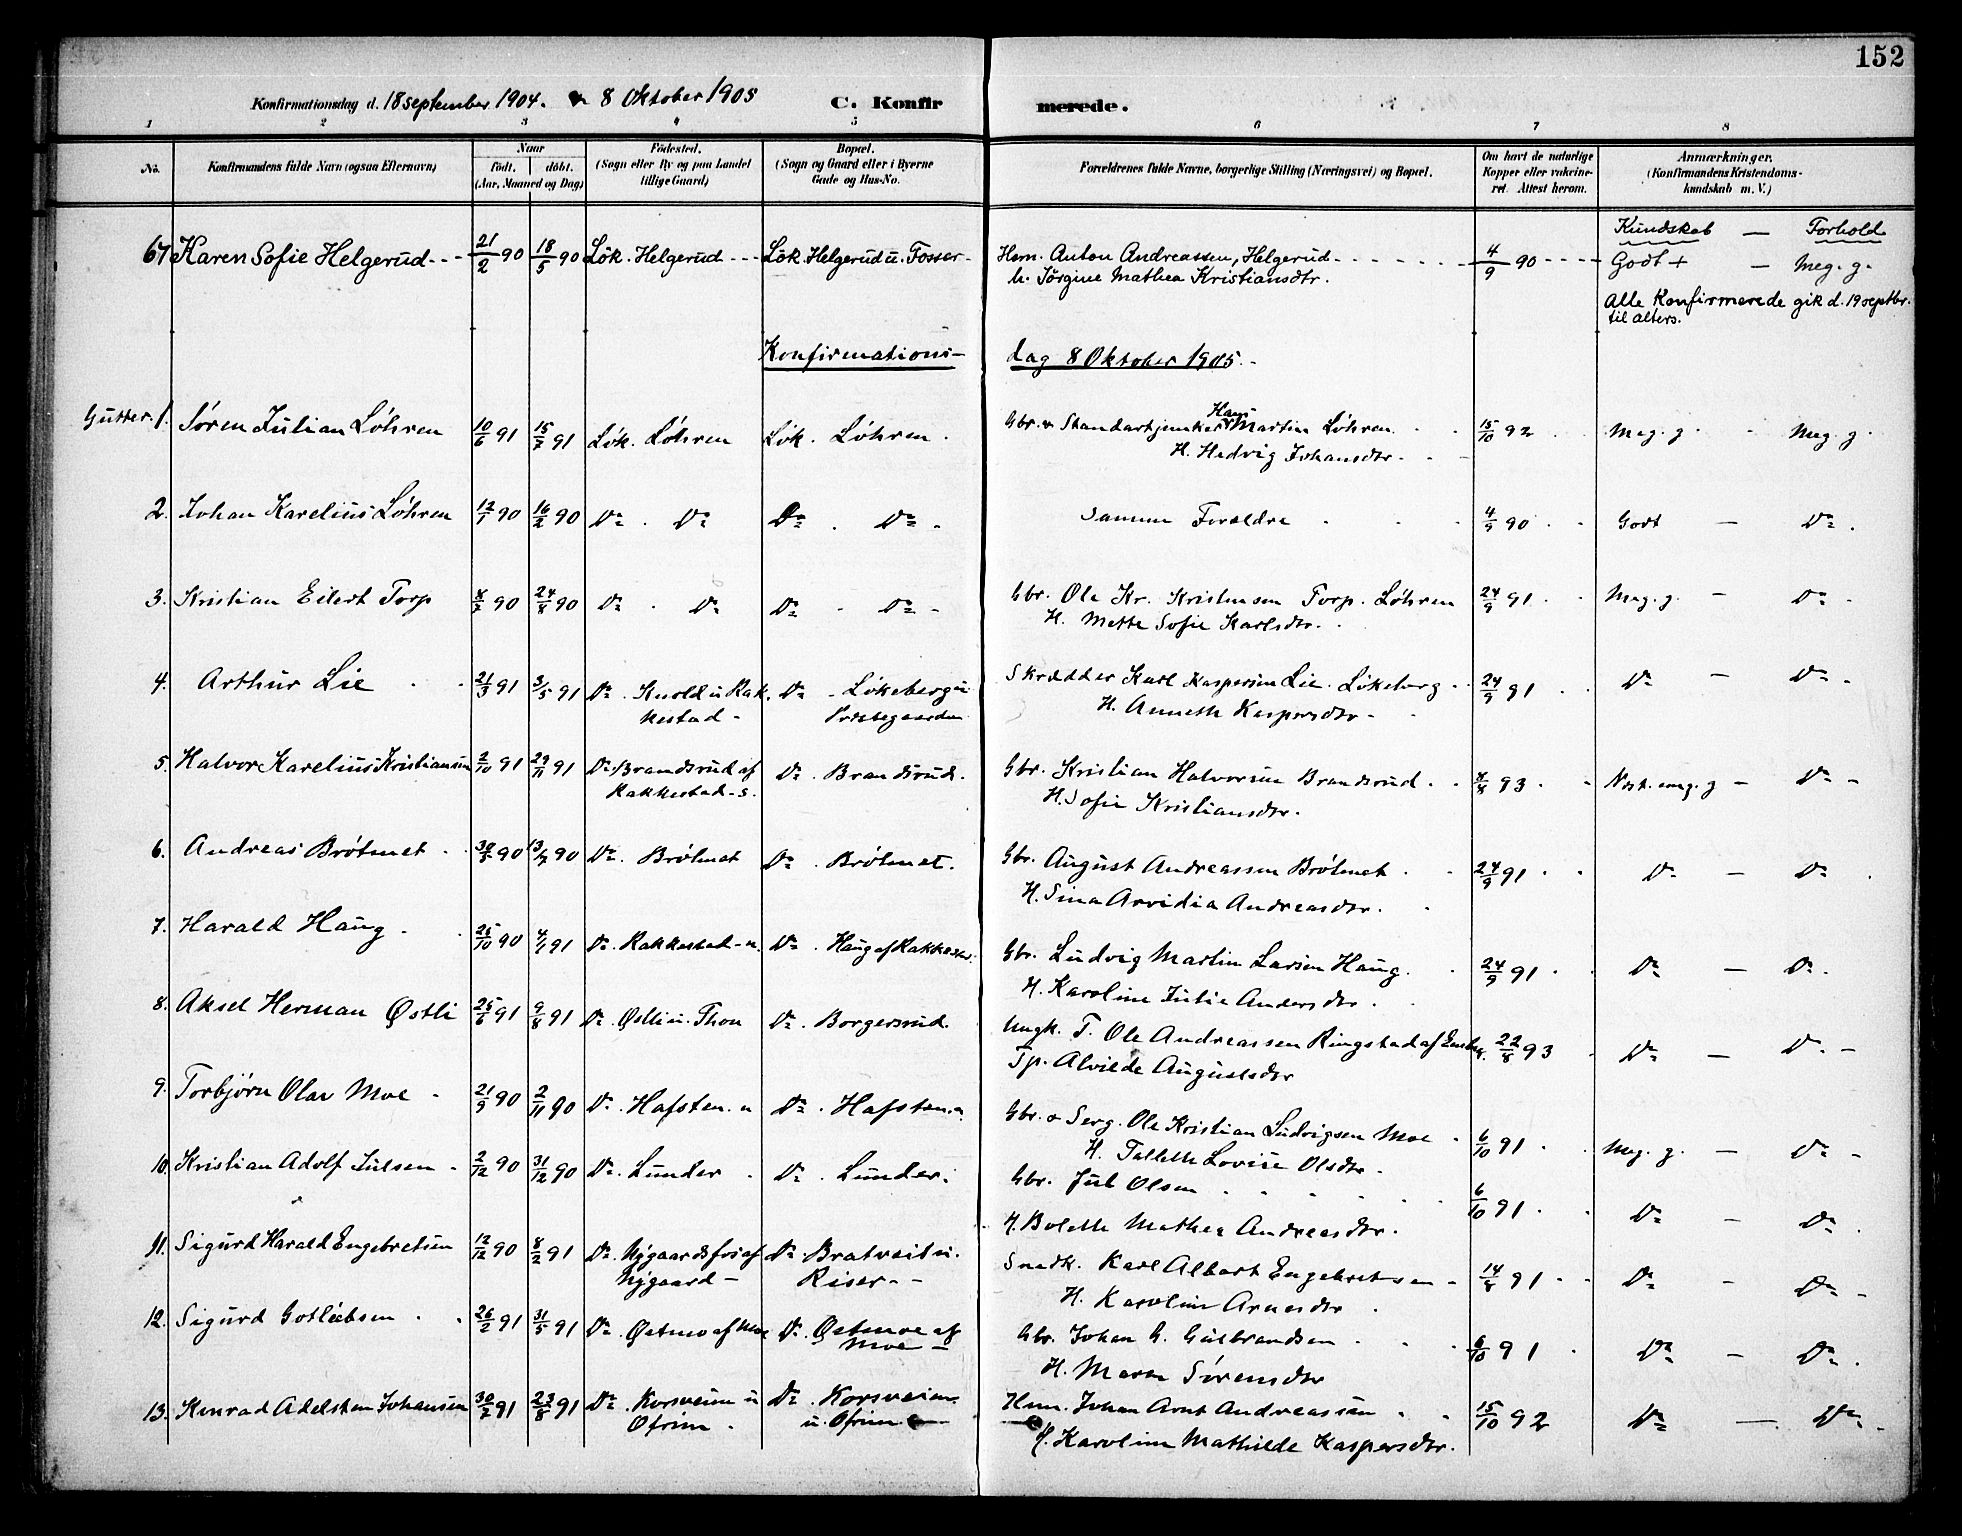 152
Konfirmationsdag d. 18 september 1904. & 8 Oktober 1905 C. Konfirmerede.
1 2 3 4 5 6 7 8
No. Konfirmandens fulde Navn (ogsaa Efternavn) Naar født. døbt. (Aar, Maaned og Dag) Fødested. (Sogn eller By og paa Landet tillige Gaard) Bopæl. (Sogn og Gaard eller i Byerne Gade og Hus-No. Forældrenes fulde Navne, borgerlige Stilling (Næringsvei) og Bopæl. Om havt de naturlige Kopper eller vakcineret. Attest herom. Anmærkninger. (Konfirmandens Kristendomskundskab m. V.)
Kundskab — Forhold
67 Karen Sofie Helgerud 21/2 90 18/5 90 Løk. Helgerud Løk. Helgerud u. Fosser Hem. Anton Andreassen, Helgerud 4/9 90 Godt + — Meg. g.
h. Jørgine Mathea Kristiansdtr.
Alle Konfirmerede gik d. 19 septbr.
til alters.
Konfirmations- dag 8 Oktober 1905.
Gutter. 1. Søren Julian Løhren 10/6 91 15/7 91 Løk. Løhren Løk. Løhren. Gbr. & Standartjunker Hans Martin Løhren 15/10 92 Meg. g. Meg. g.
H. Hedvig Johansdtr.
2. Johan Karelius Løhren 12/1 90 16/2 90 Do. Do Do. Do. Samme Forældre 4/9 90 Godt — Do.
3. Kristian Eilert Torp 8/7 90 24/8 90 Do. Do Do. Do. Gbr. Ole Kr. Kristensen Torp. Løhren 24/9 91 Meg. g. — Do.
H. Mette Sofie Karlsdtr.
4. Arthur Lie 21/3 91 3/5 91 Do. Knold u. Rakkestad Do. Løkeberg u Prestegaarden Skrædder Karl Kaspersen Lie. Løkeberg 24/9 91 Do — Do.
H. Annette Kaspersdtr.
5. Halvor Karelius Kristiansen 2/10 91 29/11 91 Do. Brandsrud af Rakkestad-s. Do. Brandsrud. Gbr. Kristian Halvorsen Brandsrud 4/8 93 Nest. meg. g — Do.
H. Sofie Kristiansdtr.
6. Andreas Brøtmet 30/5 90 13/7 90 Do. Brøtmet Do. Brøtmet. Gbr. August Andreassen Brøtmet 24/9 91 Do — Do.
H. Sina Arvidia Andreasdtr.
7. Harald Haug 25/10 90 4/1 91 Do. Rakkestad-n. Do. Haug af Rakkestad. Gbr. Ludvig Martin Larsen Haug 24/9 91 Do — Do.
H. Karoline Julie Andersdtr.
8. Aksel Herman Østli 25/6 91 9/8 91 Do. Østli u. Thon Do. Borgersrud. Ungk. T. Ole Andreassen Ringstad af Enebg. 22/8 93 Do — Do.
Tp. Alvilde Augustsdtr
9. Torbjørn Olav Moe 21/9 90 2/11 90 Do. Hafsten. n Do. Hafsten. n. Gbr. & Serg. Ole Kristian Ludvigsen Moe 6/10 91 Meg. g. — Do.
H. Tallette Lovise Olsdtr.
10. Kristian Adolf Julsen 2/12 90 31/12 90 Do. Lunder Do. Lunder. Gbr. Jul Olsen 6/10 91 Do — Do.
H. Bolette Mathea Andreasdtr.
11. Sigurd Harald Engebretsen 12/12 90 8/2 91 Do. Nygaardsfos af Nygaard Do. Bratveit u. Riser Snedk. Karl Albert Engebretsen 14/8 91 Do — Do.
H. Karoline Arnesdtr
12. Sigurd Gotliebsen 26/2 91 31/5 91 Do. Østmo af Moe Do. Østmoe af Moe Gbr. Johan G. Gulbrandsen 6/10 91 Do — Do.
H. Maren Sørensdtr
13. Konrad Adelsten Johansen 30/7 91 23/8 91 Do. Korsveien u Ofrim. Do. Korsveien u Ofrim Hmn. Johan Arnt Andreassen 15/10 92 Do — Do.
H. Karoline Mathilde Kaspersdtr.